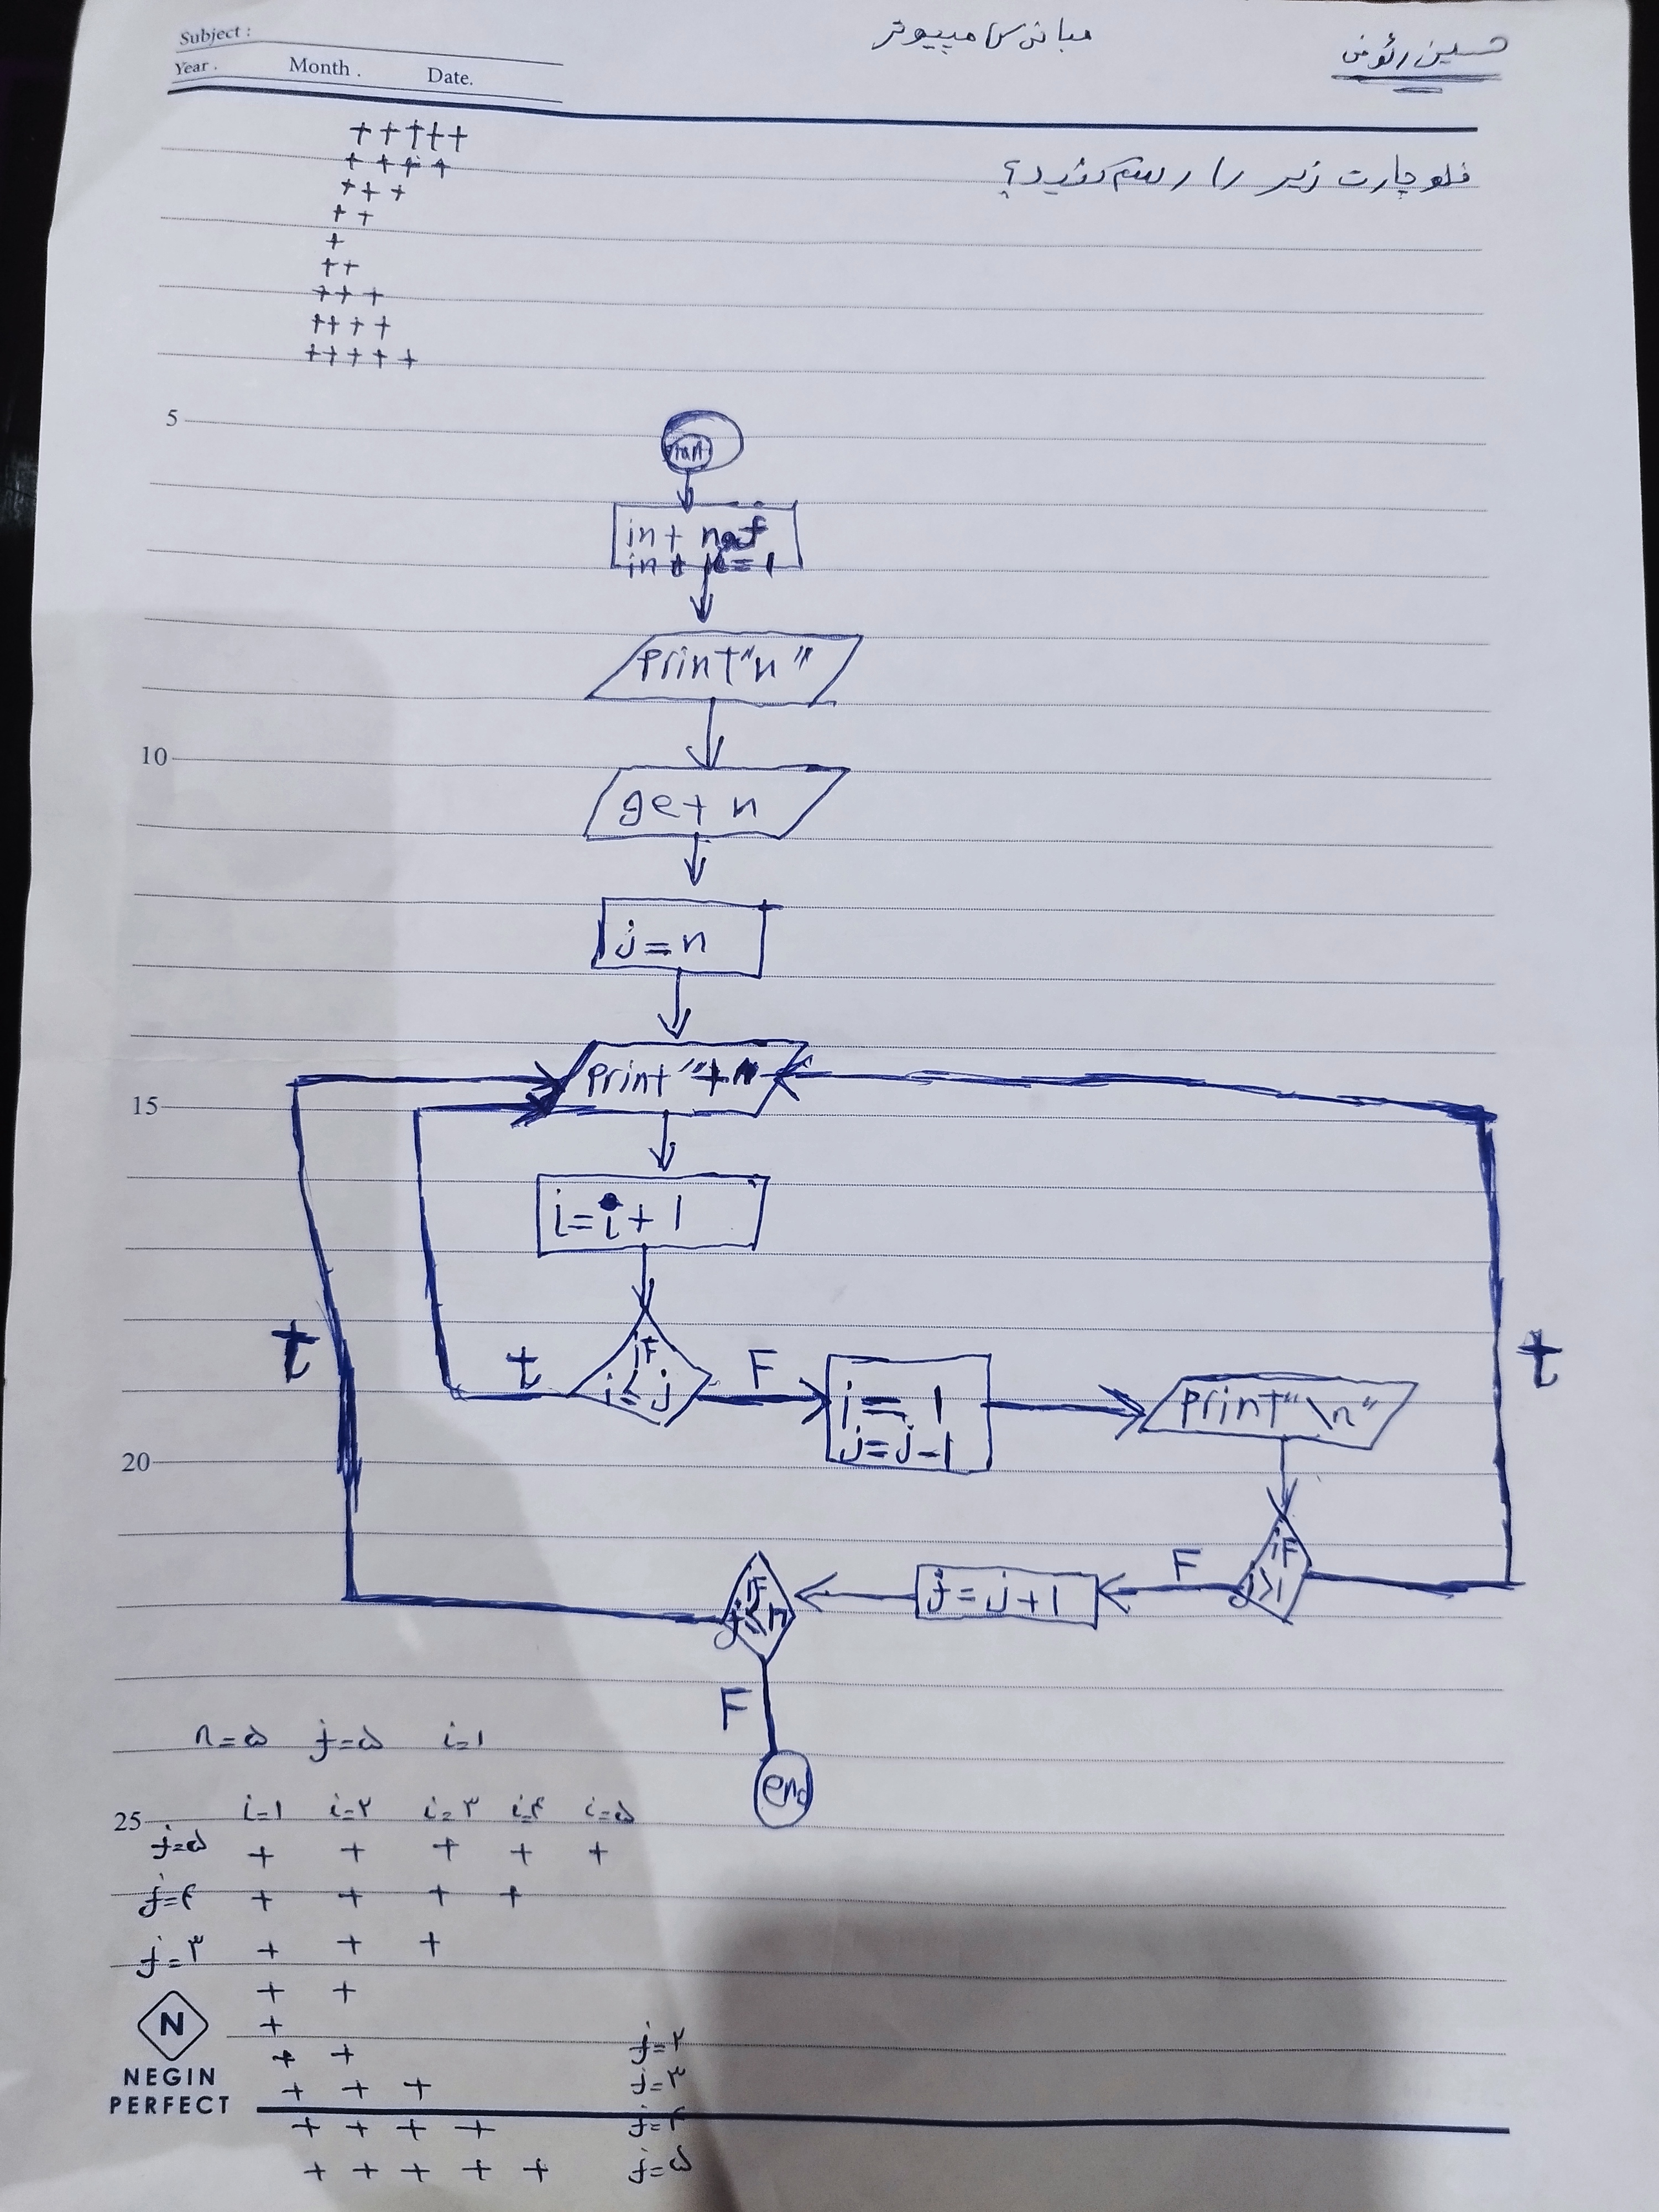 Subject :
Year .   Month .   Date.
مبانی کامپیوتر
حسین رئوفی
فلوچارت زیر را رسم کنید؟
+++++
++++
+++
++
+
++
+++
++++
+++++
5
start
int
int i=1
print"n"
10
get n
j=n
print "+"
15
i=i+1
if
i≤j
t
F
i=1
j=j-1
print"\n"
t
t
20
if
j>1
F
j=j+1
if
j≤n
F
end
n=۵ j=۵ i=1
25
i=1 i=۲ i=۳ i=۴ i=۵
j=۵ + + + + +
j=۴ + + + +
j=۳ + + +
+ +
+
+ + j=۲
+ + + j=۳
+ + + + j=۴
+ + + + + j=۵
N
NEGIN
PERFECT